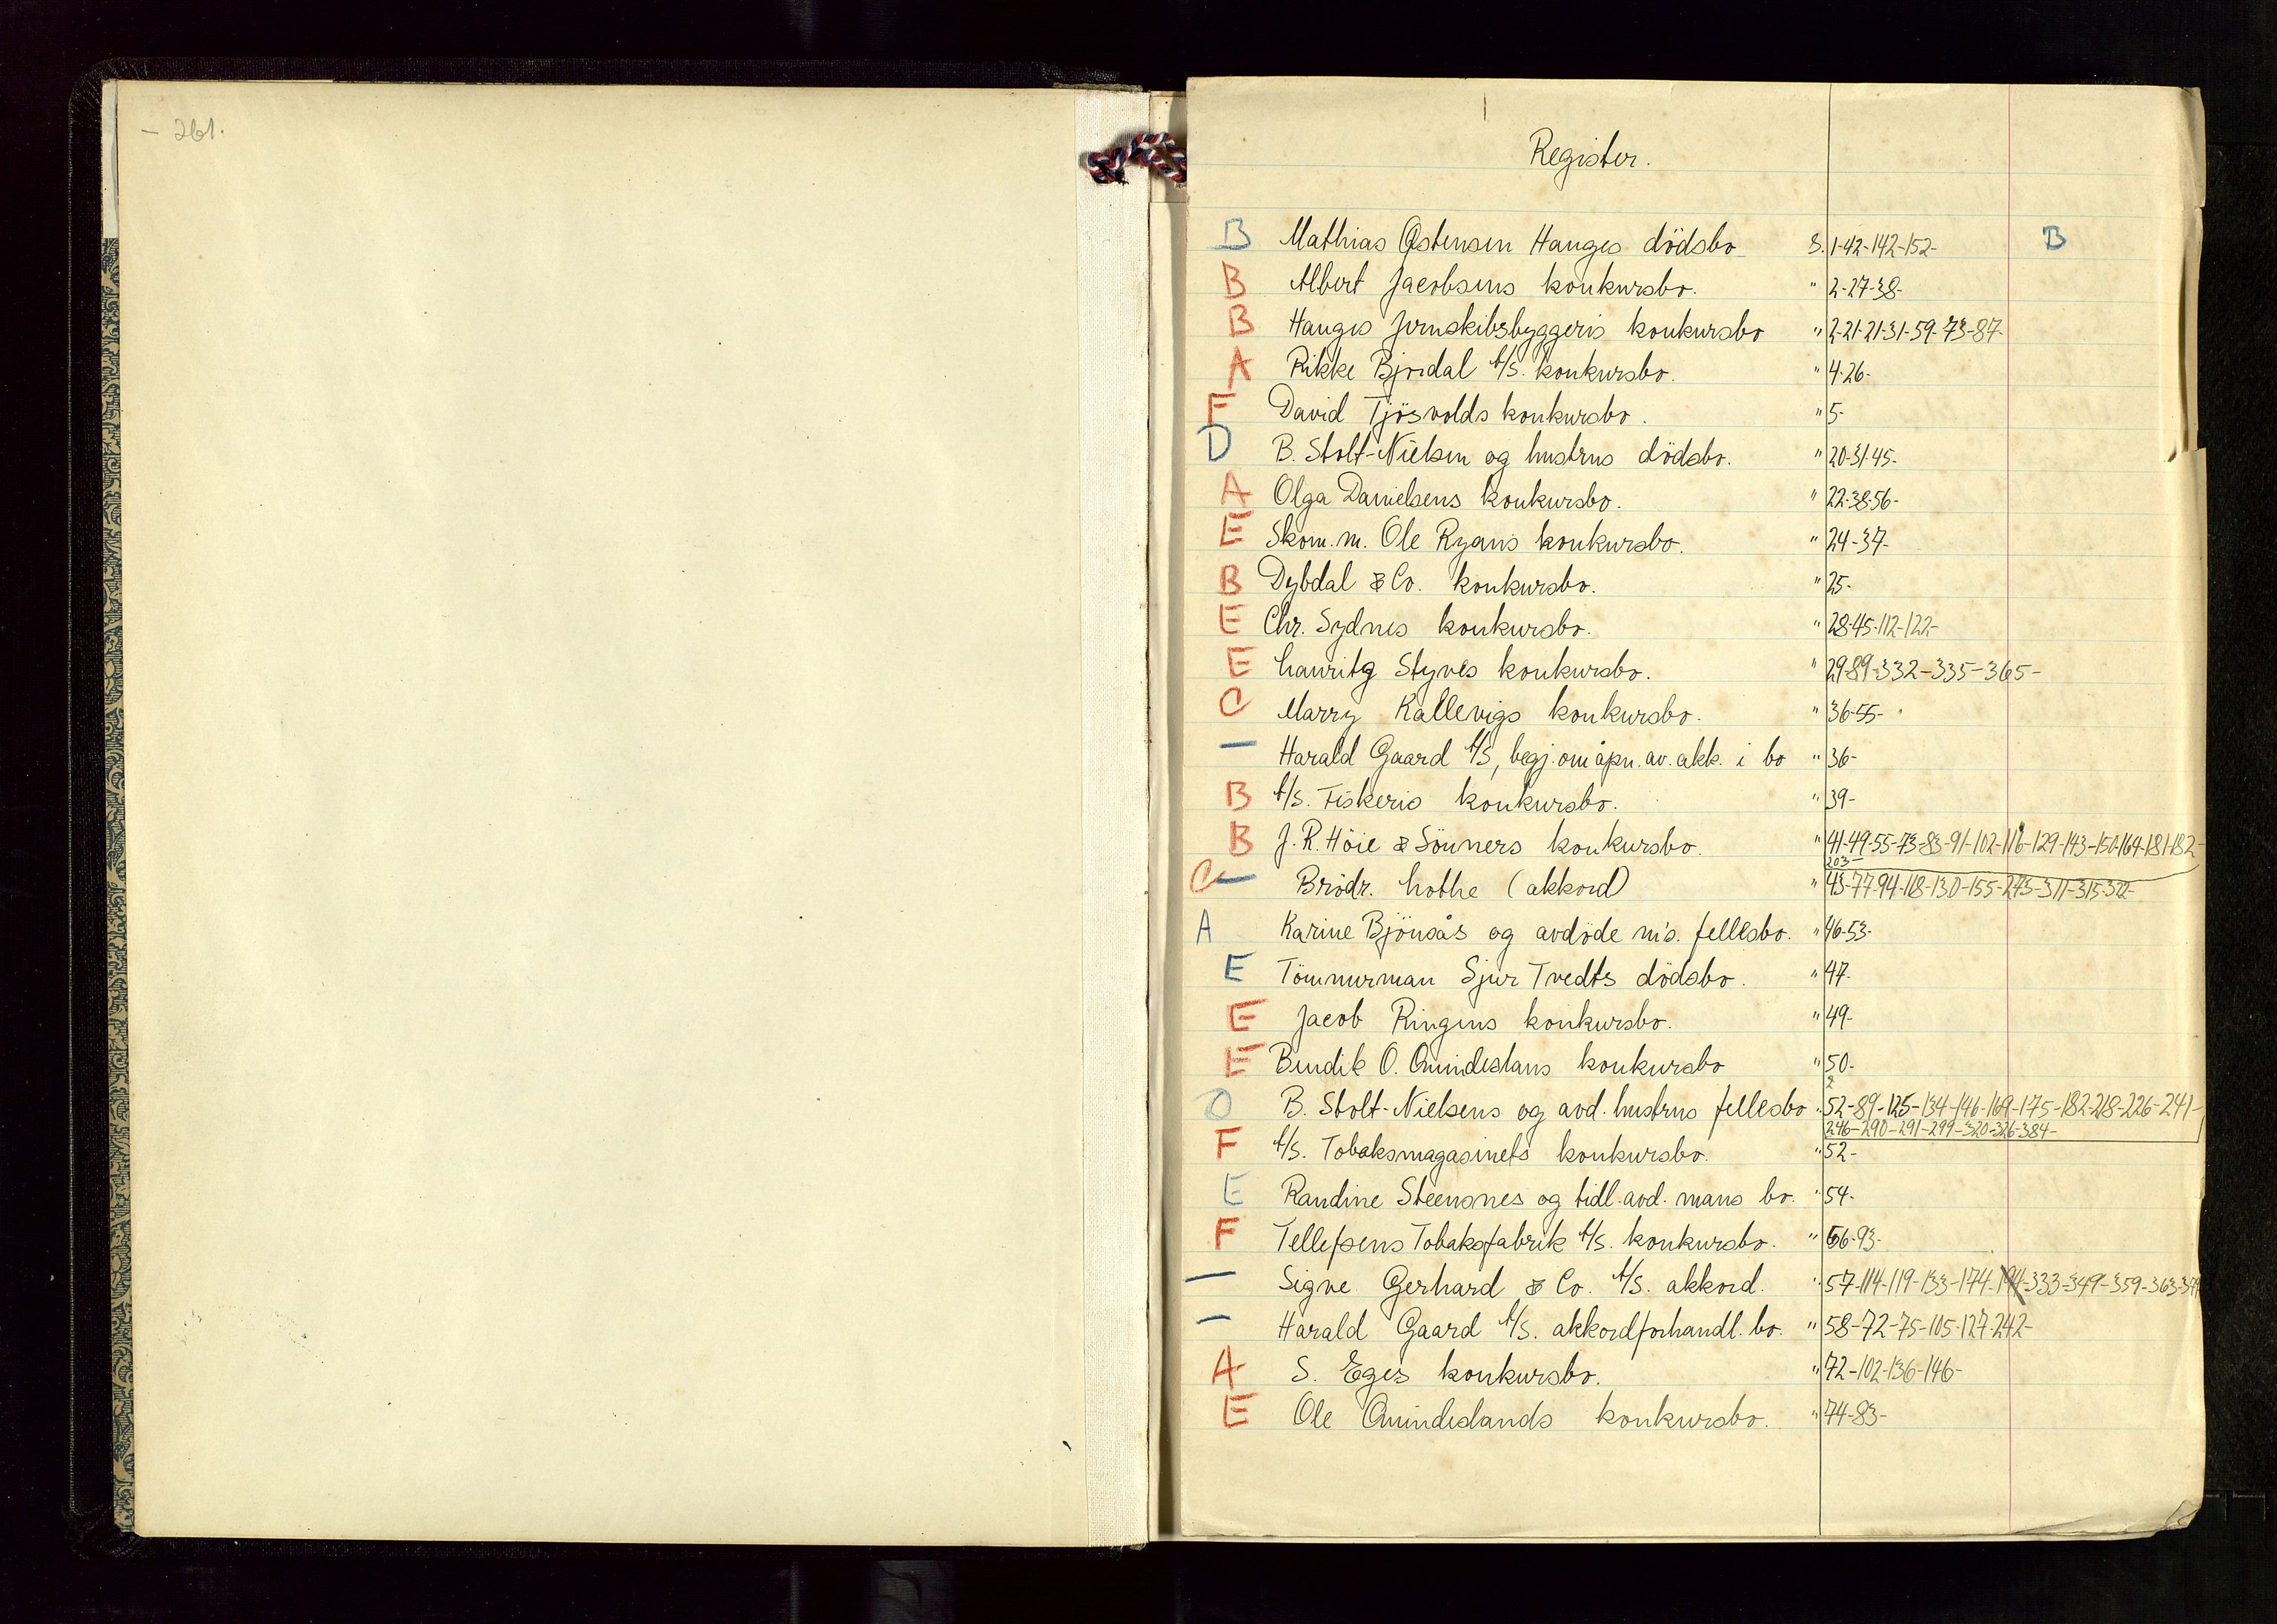 - 261.
Register.
B Mathias Østensen Hauges dödsbo S. 1-42-142-152- B
B Albert Jacobsens konkursbo. " 2-27-38-
B Hauges Jernskibsbyggeris konkursbo " 2-21-21-31-59-73-87-
A Rikke Bjordal A/S. konkursbo. " 4-26-
F David Tjösvolds konkursbo. " 5-
D B. Stolt-Nielsen og hustrus dödsbo. " 20-31-45-
A Olga Danielsens konkursbo. " 22-38-56-
E Skom.m. Ole Ryans konkursbo. " 24-37-
B Dybdal & Co. konkursbo. " 25-
E Chr. Sydnes konkursbo. " 28-45-112-122-
E Lauritz Styves konkursbo. " 29-89-332-335-365-
C Marry Kallevigs konkursbo. " 36-55-
— Harald Gaard A/S, begj. om åpn. av. akk. i bo " 36-
B A/S. Fiskeris konkursbo. " 39-
B J. R. Höie & Sönners konkursbo. " 41-49-55-73-83-91-102-116-129-143-150-164-181-182-
203-
C — Brödr. Lothe (akkord) " 43-77-94-118-130-155-273-311-315-322-
A Karine Bjönsås og avdöde m's. fellesbo. " 46-53-
E Tömmerman Sjur Tvedts dödsbo. " 47-
E Jacob Ringens konkursbo. " 49-
E Bendik O. Omindeslans konkursbo " 50-
2
D B. Stolt-Nielsens og avd. hustrus fellesbo " 52-89-125-134-146-169-175-182-218-226-241-
246-290-291-299-320-326-384-
F A/S. Tobaksmagasinets konkursbo. " 52-
E Randine Steensnes og tidl. avd. mans bo. " 54-
F Tellefsens Tobaksfabrik A/S. konkursbo. " 56-93-
— Signe Gerhard & Co. A/S. akkord. " 57-114-119-133-174-194-333-349-359-363-371
— Harald Gaard A/S. akkordforhandl. bo. " 58-72-75-105-127-242-
A S. Eges konkursbo. " 72-102-136-146-
E Ole Omindeslands konkursbo. " 74-83-